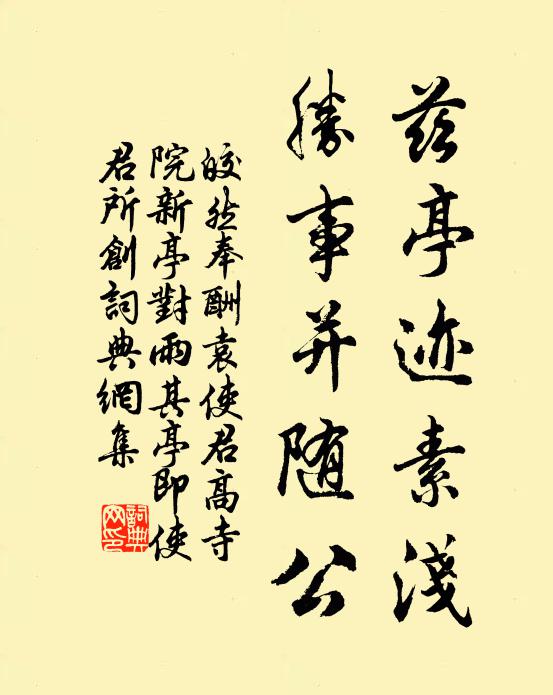 茲亭迹素淺
勝事并随公
皎然奉酬袁使君高寺
院新亭對雨其亭即使
君所創詞典網集
詞典
网印